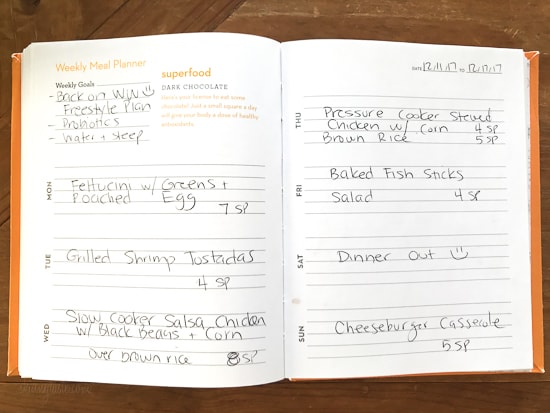 Weekly Meal Planner
Weekly Goals
- Back on WW
Freestyle Plan
- Probiotics
- Water + sleep
superfood
DARK CHOCOLATE
Here's your license to eat some
chocolate! Just a small square a day
will give your body a dose of healthy
antioxidants.
MON
Fettucini w/ Greens +
Poached Egg
7 SP
TUE
Grilled Shrimp Tostadas
4 SP
WED
Slow Cooker Salsa Chicken
w/ Black Beans + Corn
Over brown rice 8 SP
DATE 12/11/17 TO 12/17/17
THU
Pressure Cooker Stewed
Chicken w/ Corn 4 SP
Brown Rice 5 SP
FRI
Baked Fish Sticks
Salad 4 SP
SAT
Dinner Out
SUN
Cheeseburger Casserole
5 SP